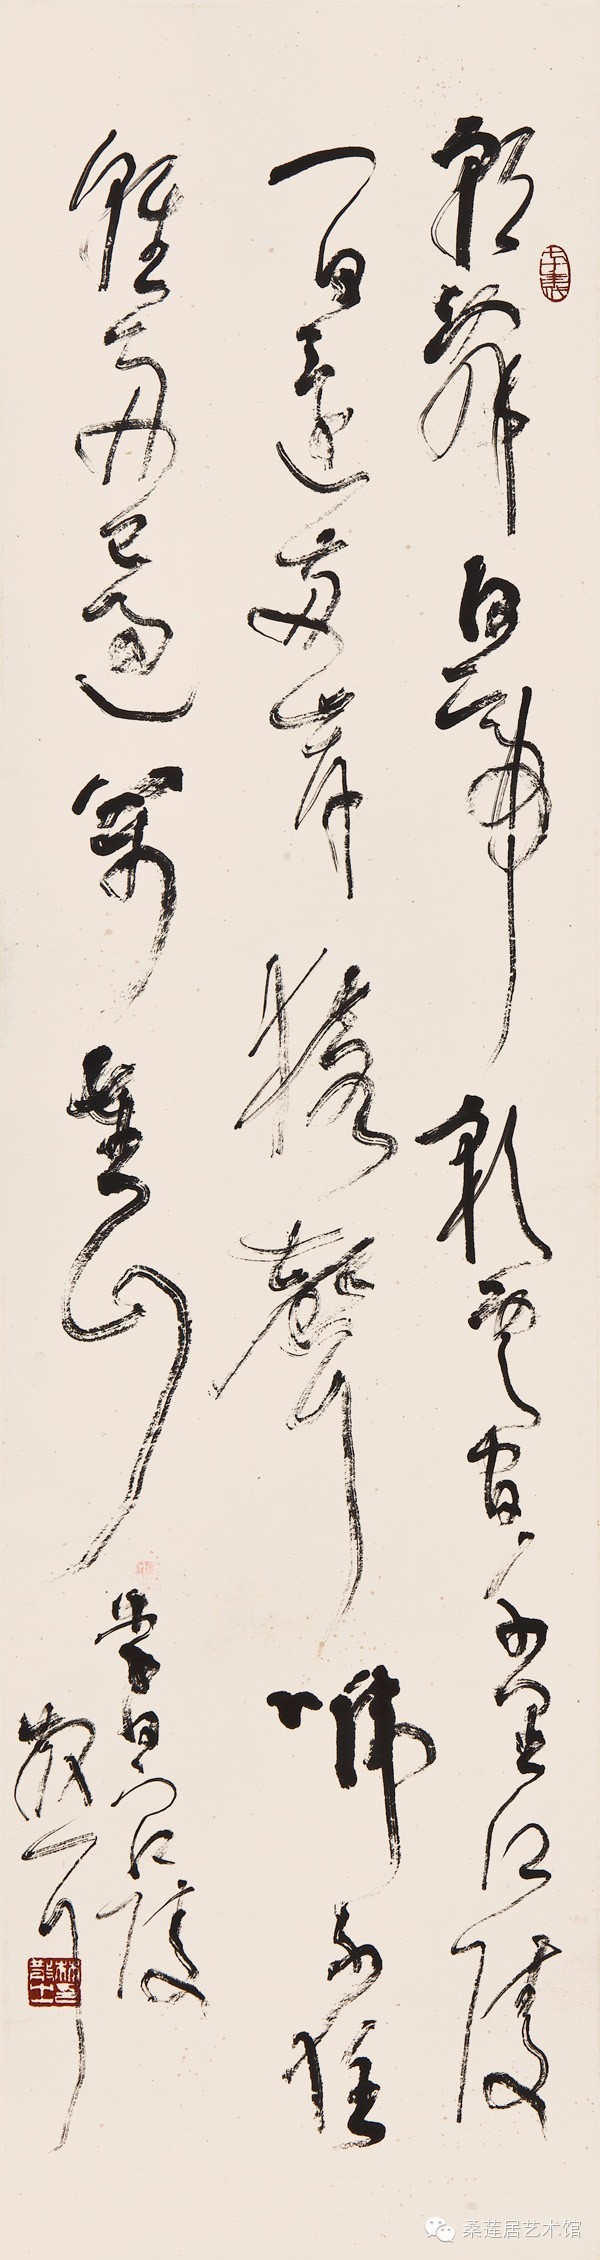 朝辭白帝彩雲間千里江陵
一日還兩岸猿聲啼不住
輕舟已過萬重山
李白下江陵
散耳
桑莲居艺术馆